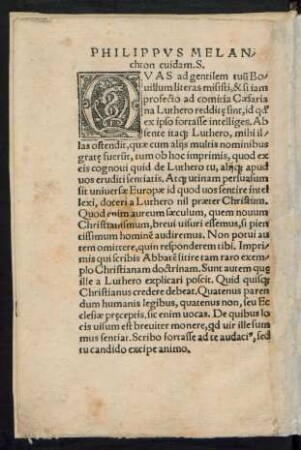 PHILIPPVS MELAN
chton cuidam. S.
QVAS ad gentilem tuũ Bo
uillum literas misisti, & si iam
profecto ad comitia Cæsaria
na Luthero redditę sint, id qđ
ex ipso fortasse intelliges. Ab
sente itaq; Luthero, mihi il
las ostendit, quæ cum alijs multis nominibus
gratę fuerũt, tum ob hoc imprimis, quod ex
eis cognoui quid de Luthero tu, alijq; apud
uos eruditi sentiatis. Atq; utinam persuasum
sit uniuersæ Europæ id quod uos sentire intel
lexi, doceri a Luthero nil præter Christum.
Quod enim aureum sæculum, quem nouum
Christianismum, breui uisuri essemus, si pien
tissimum hominẽ audiremus. Non potui au
tem omittere, quin responderem tibi. Imprimis
qui scribis Abbatẽ sitire tam raro exem
plo Christianam doctrinam. Sunt autem quę
ille a Luthero explicari poscit. Quid quisq;
Christianus credere debeat. Quatenus paren
dum humanis legibus, quatenus non, seu Ec
clesiæ pręceptis, sic enim uocas. De quibus lo
cis uisum est breuiter monere, qđ uir ille sum
mus sentiat. Scribo fortasse ad te audaci, sed
tu candido excipe animo.